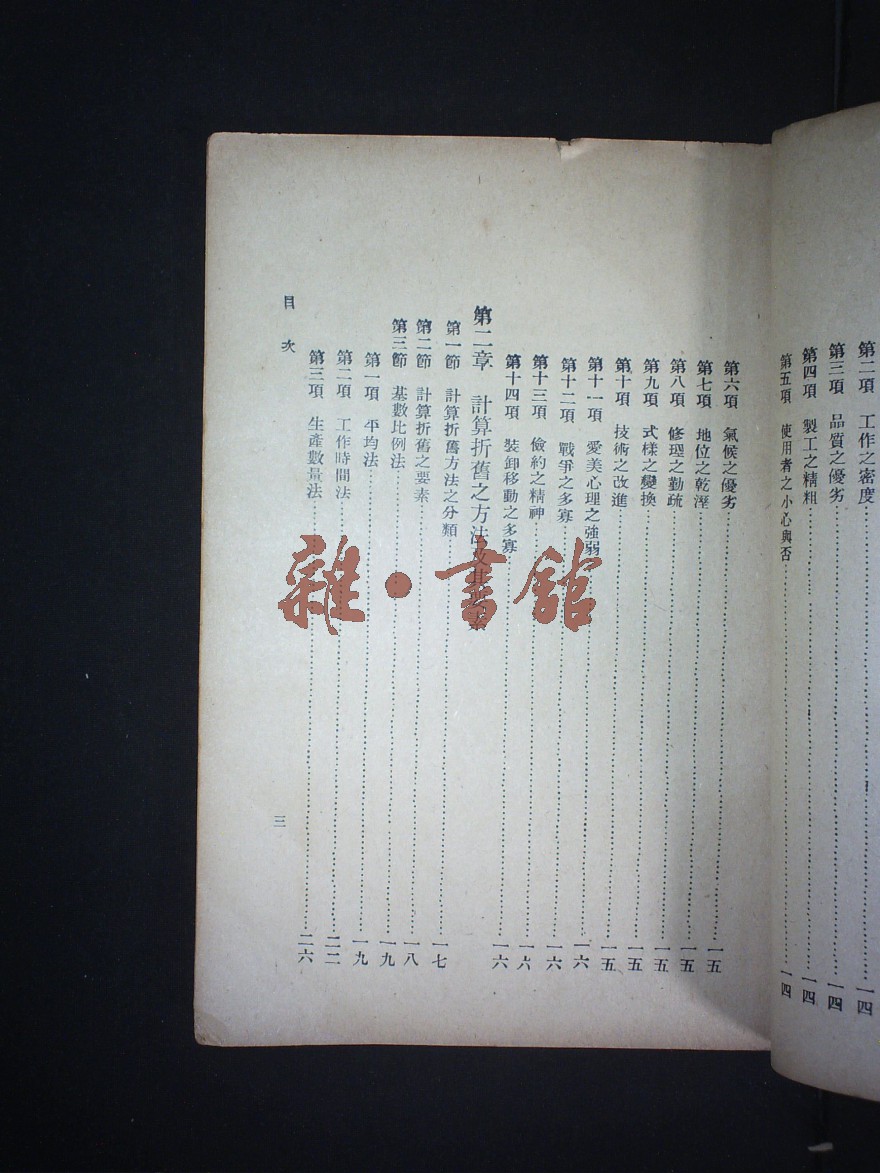 第二項 工作之密度……一四
第三項 品質之優劣……一四
第四項 製工之精粗……一四
第五項 使用者之小心與否……一四
第六項 氣候之優劣……一五
第七項 地位之乾溼……一五
第八項 修理之勤疏……一五
第九項 式樣之變換……一五
第十項 技術之改進……一五
第十一項 愛美心理之強弱……一六
第十二項 戰爭之多寡……一六
第十三項 儉約之精神……一六
第十四項 裝卸移動之多寡……一六
第二章 計算折舊之方法及其要素
第一節 計算折舊方法之分類……一七
第二節 計算折舊之要素……一八
第三節 基數比例法……一九
第一項 平均法……一九
第二項 工作時間法……二二
第三項 生產數量法……二六
目次
三
雜·書館